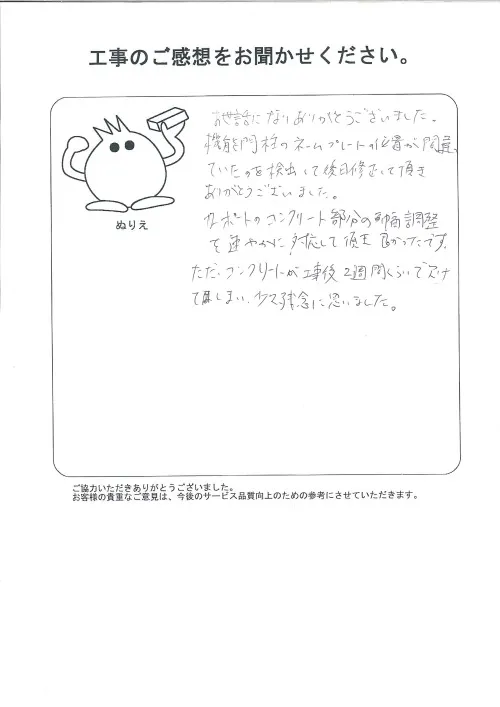 工事のご感想をお聞かせください。
お世話になりありがとうございました。
機能門柱のネームプレートの位置が間違っ
ていたのを検出して後日修正して頂き
ありがとうございました。
カーポートのコンクリート部分の幅調整
を速やかに対応して頂き良かったです。
ただ、コンクリートが工事後2週間くらいで欠け
てしまい、少々残念に思いました。
ぬりえ
ご協力いただきありがとうございました。
お客様の貴重なご意見は、今後のサービス品質向上のための参考にさせていただきます。